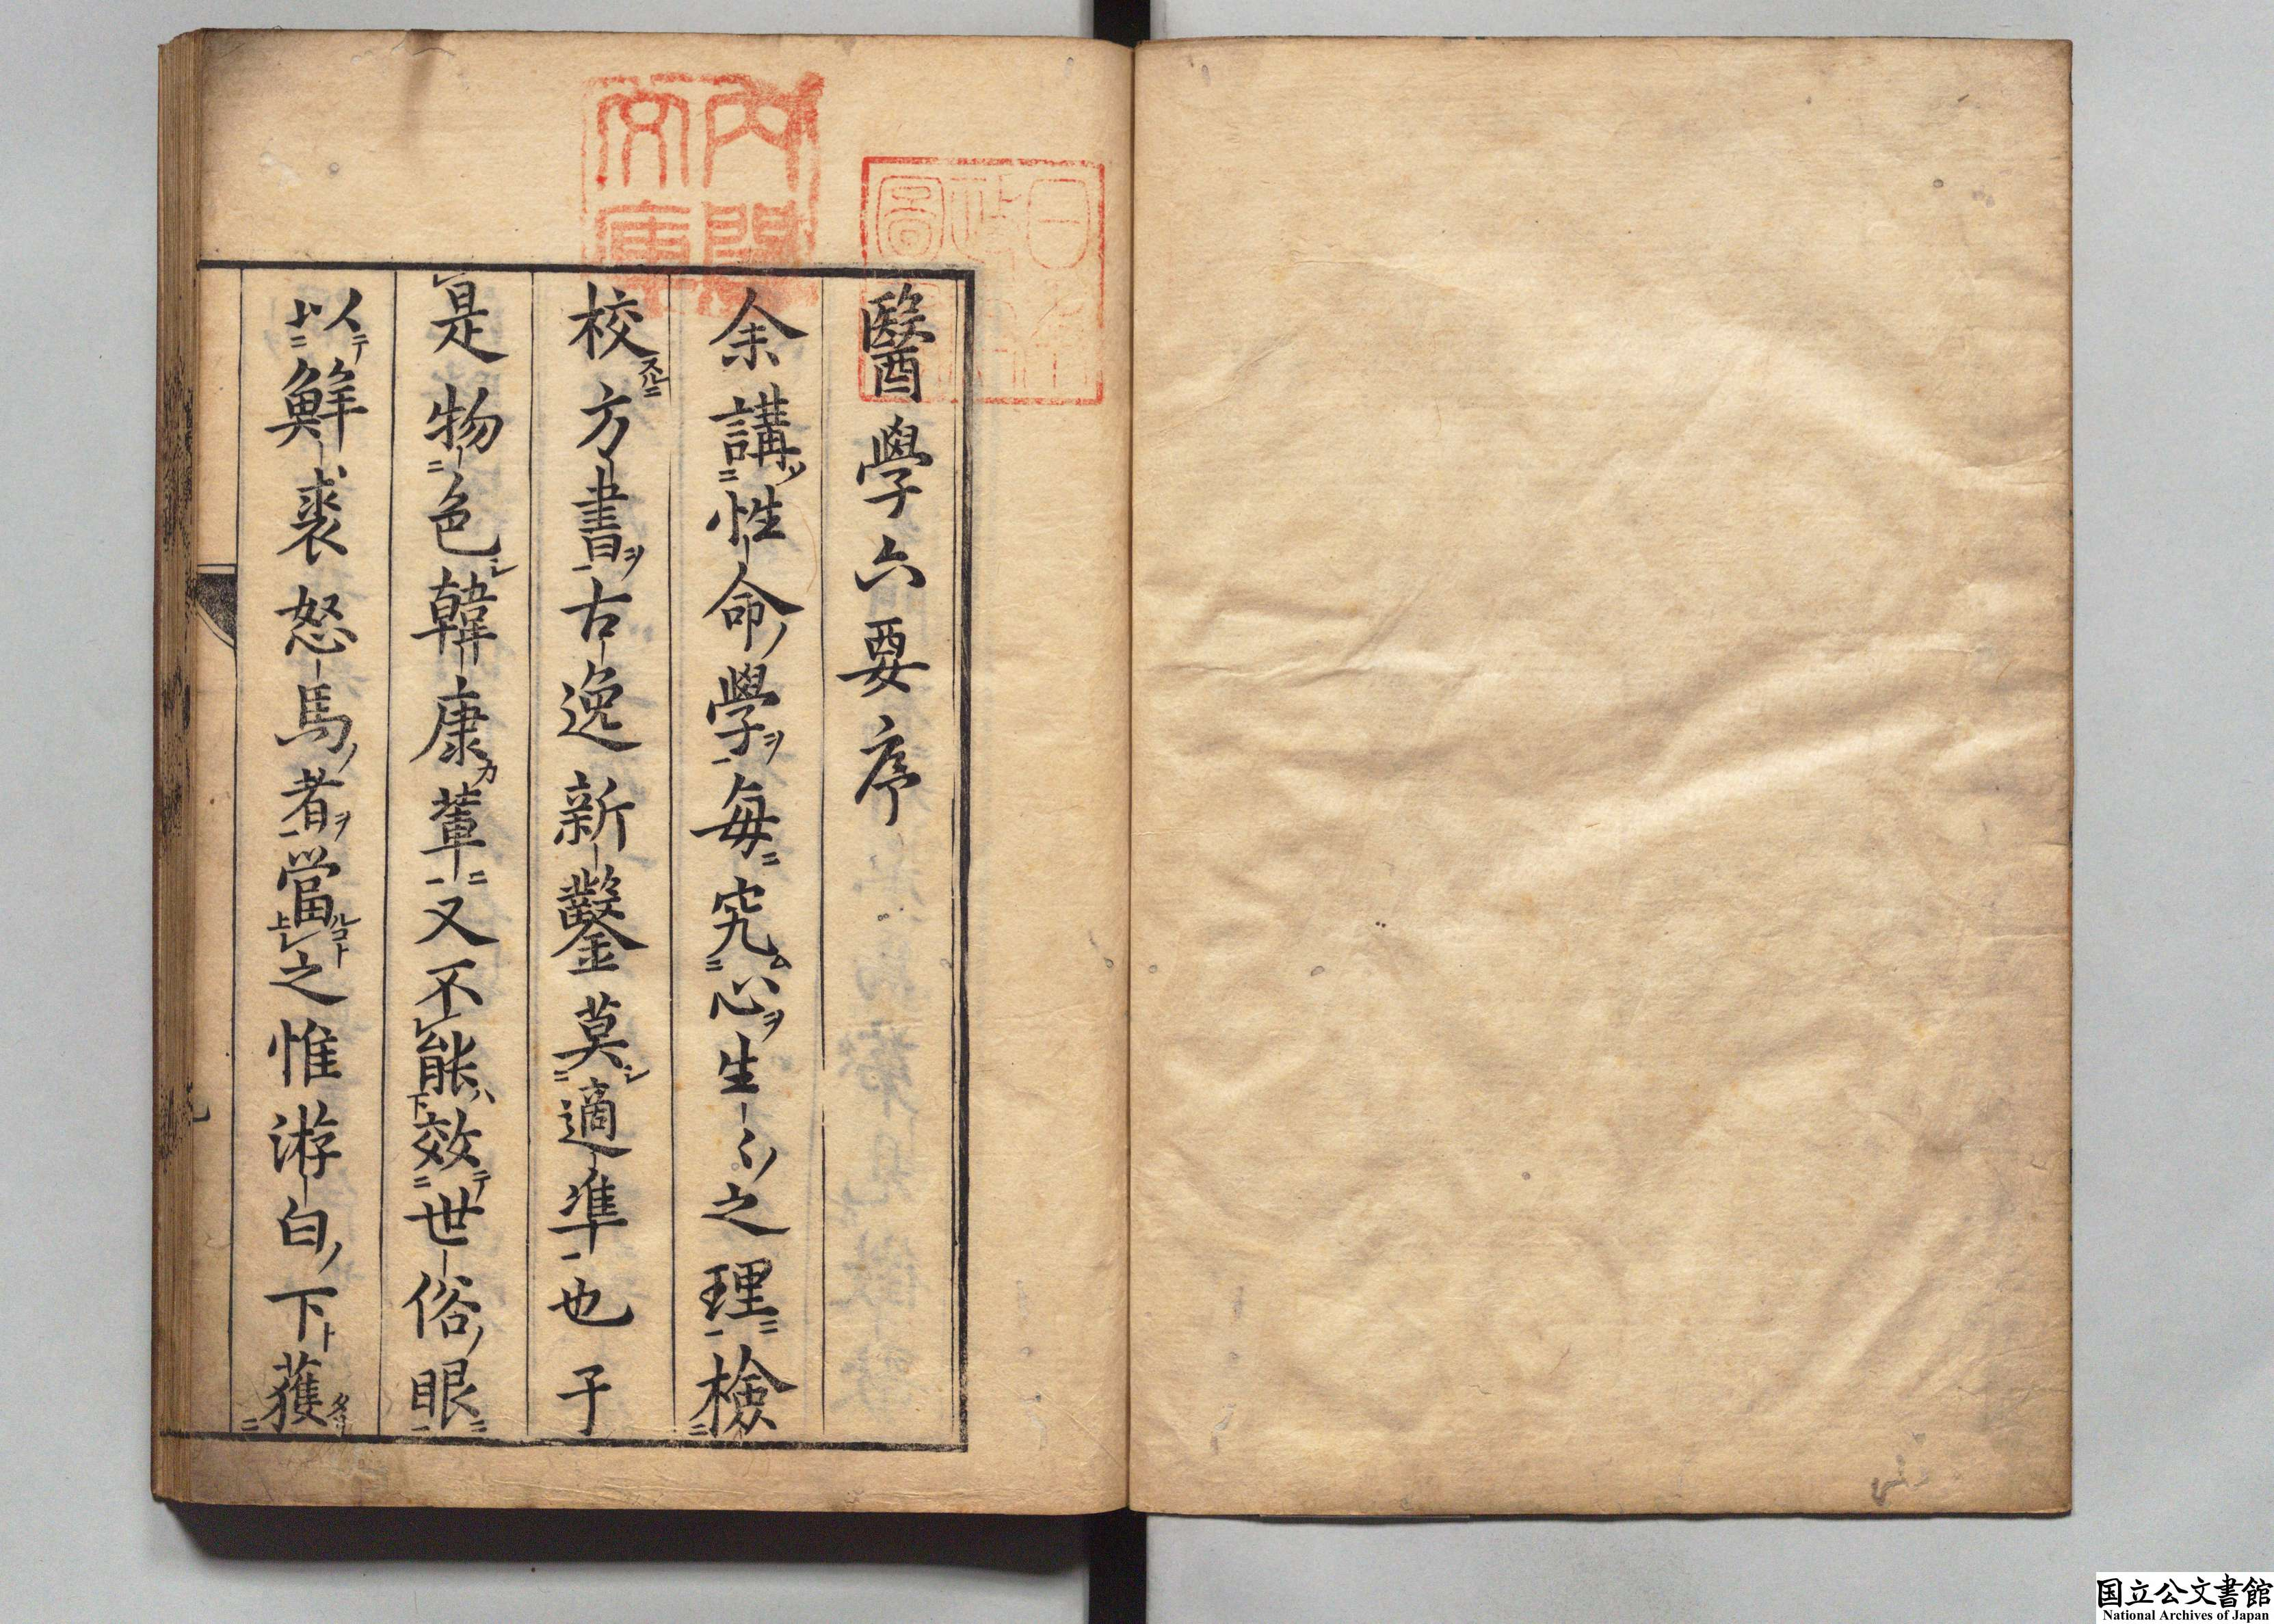 日本政府圖書
内閣文庫
醫學六要序
余講性命學每究心生〻之理檢
校方書古逸新鑿莫適準也于
是物色韓康輩又不能效世俗眼
以鮮裘怒馬者當之惟游白下獲
国立公文書館
National Archives of Japan